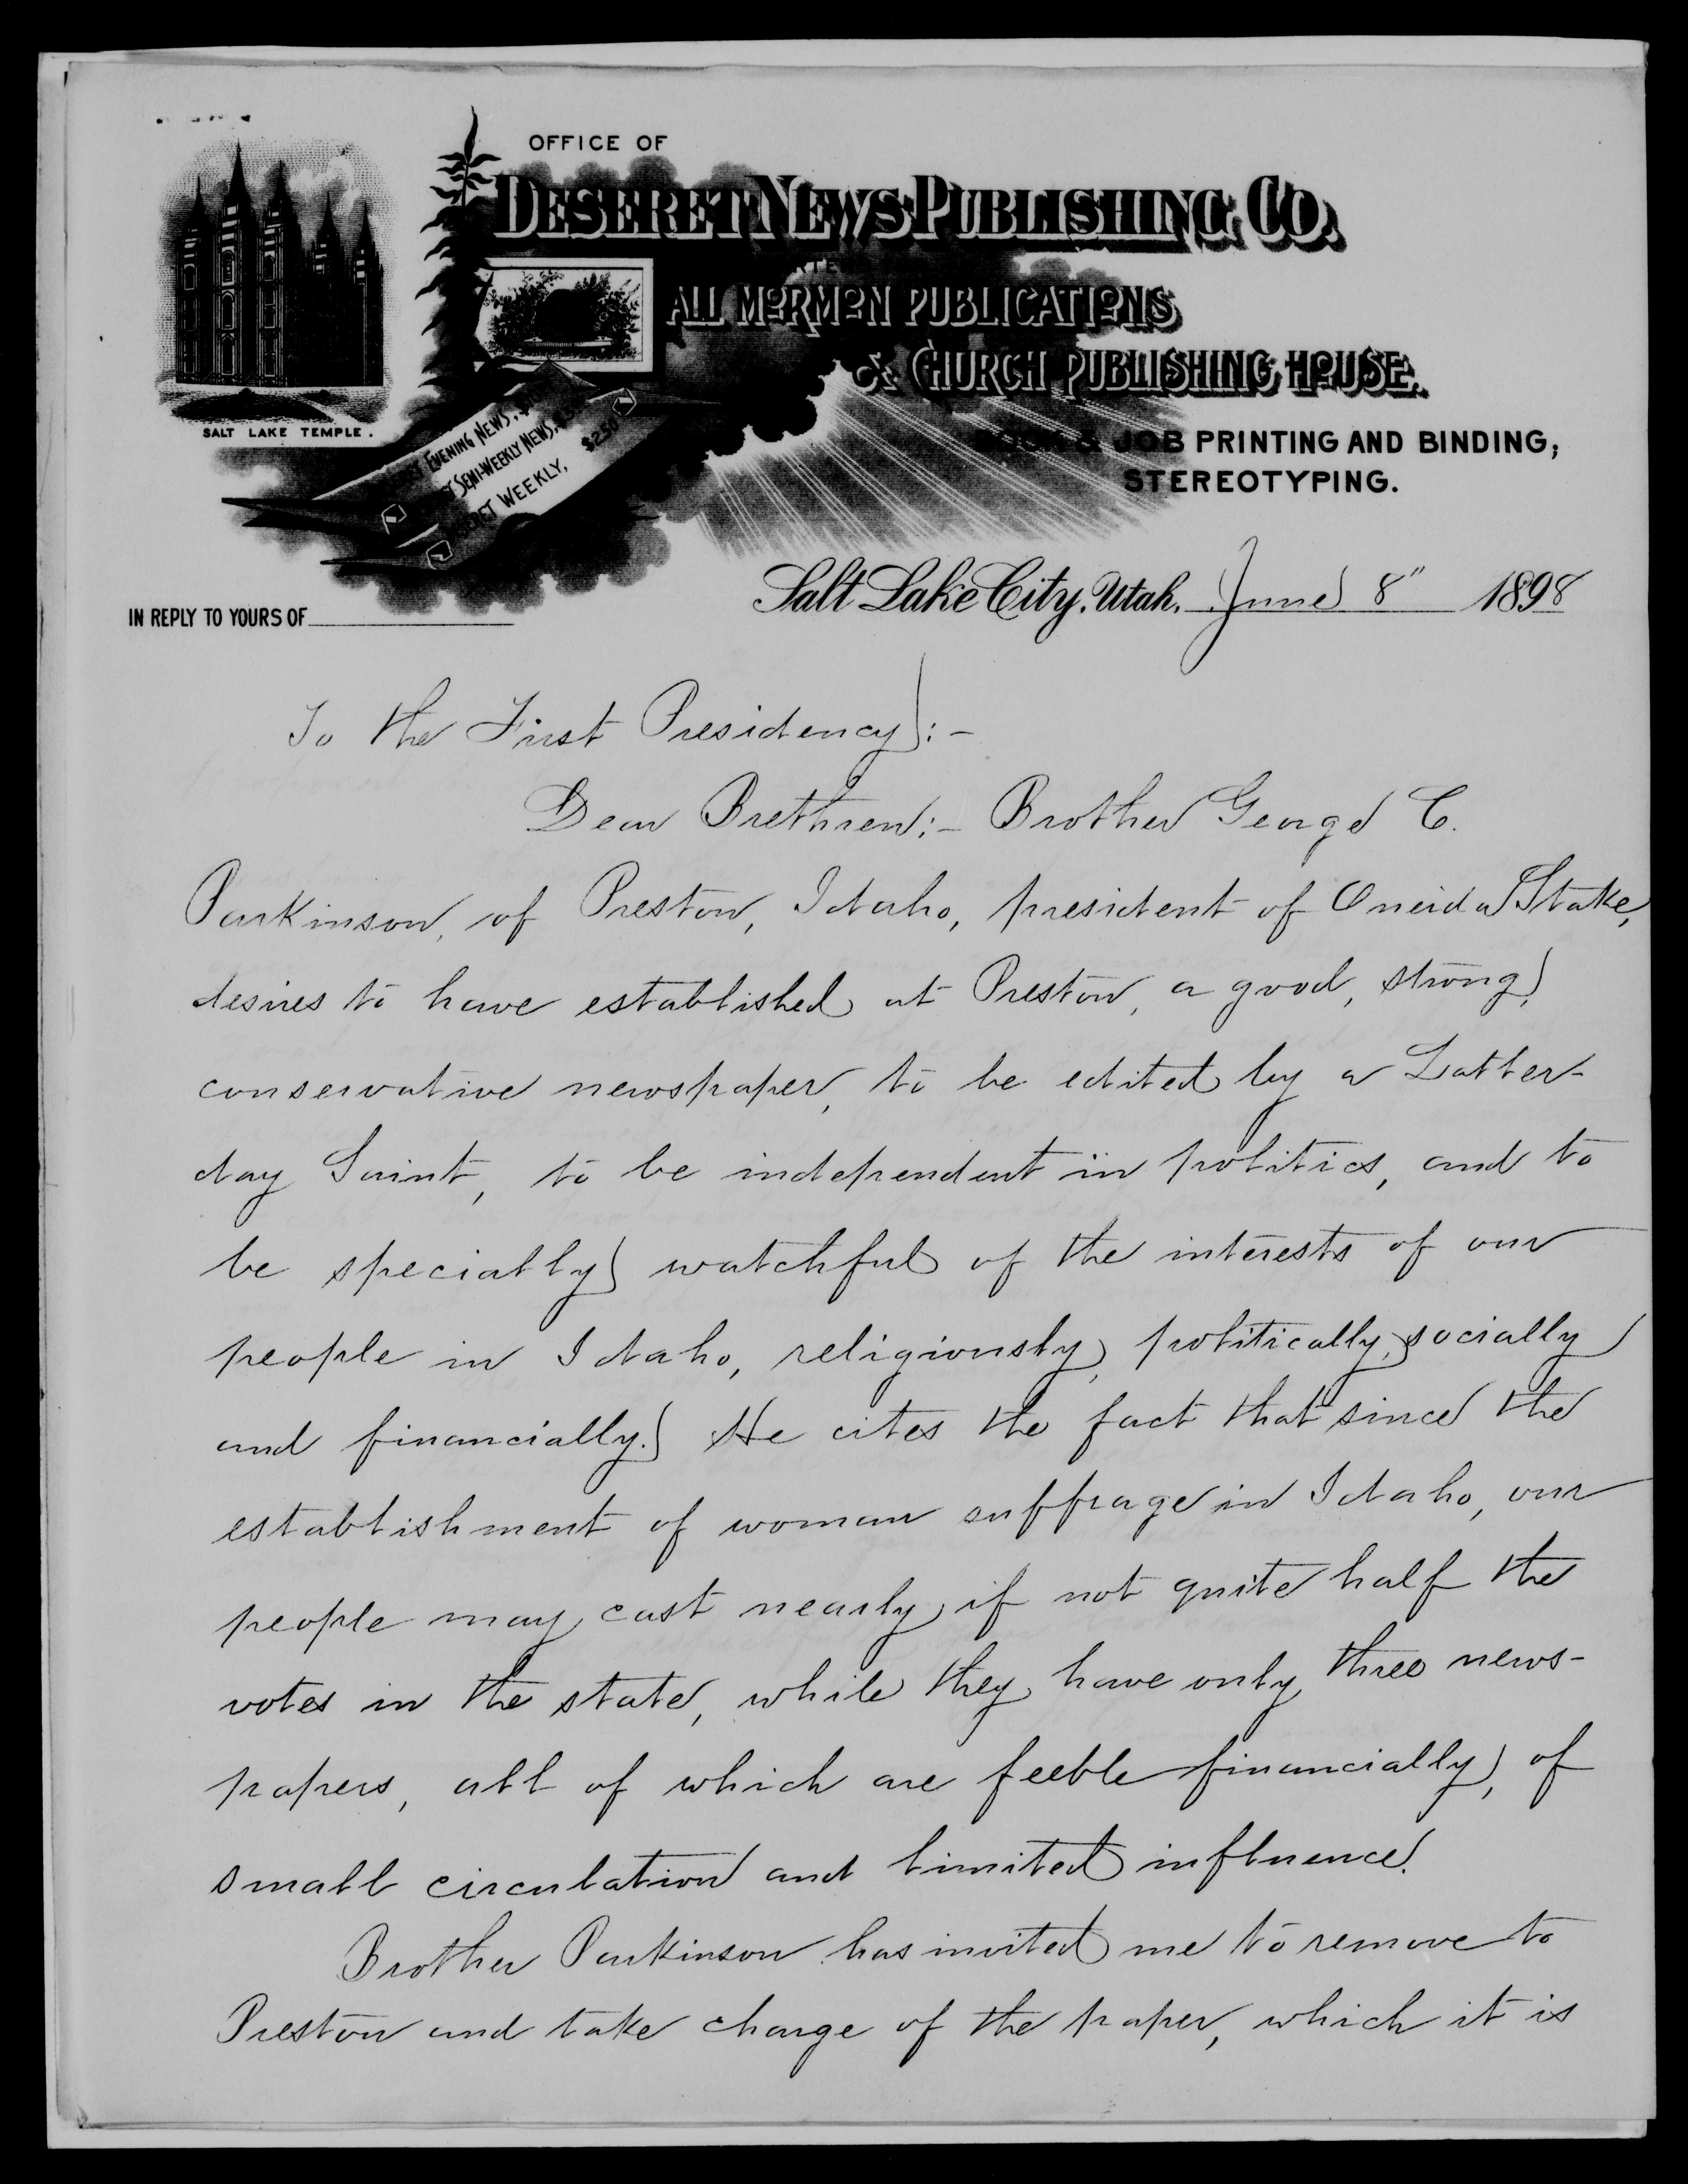 OFFICE OF
DESERET NEWS PUBLISHING CO.
ALL MORMON PUBLICATIONS
& CHURCH PUBLISHING HOUSE.
BOOK & JOB PRINTING AND BINDING,
STEREOTYPING.
SALT LAKE TEMPLE.
EVENING NEWS,
SEMI-WEEKLY NEWS,
WEEKLY, $2.50
IN REPLY TO YOURS OF
Salt Lake City, Utah, June 8" 1898
To the First Presidency:-
Dear Brethren:- Brother George C.
Parkinson, of Preston, Idaho, president of Oneida Stake,
desires to have established at Preston, a good, strong,
conservative newspaper, to be edited by a Latter-
day Saint, to be independent in politics, and to
be specially watchful of the interests of our
people in Idaho, religiously, politically, socially
and financially. He cites the fact that since the
establishment of woman suffrage in Idaho, our
people may cast nearly if not quite half the
votes in the state, while they have only three news-
papers, all of which are feeble financially, of
small circulation and limited influence.
Brother Parkinson has invited me to remove to
Preston and take charge of the paper, which it is